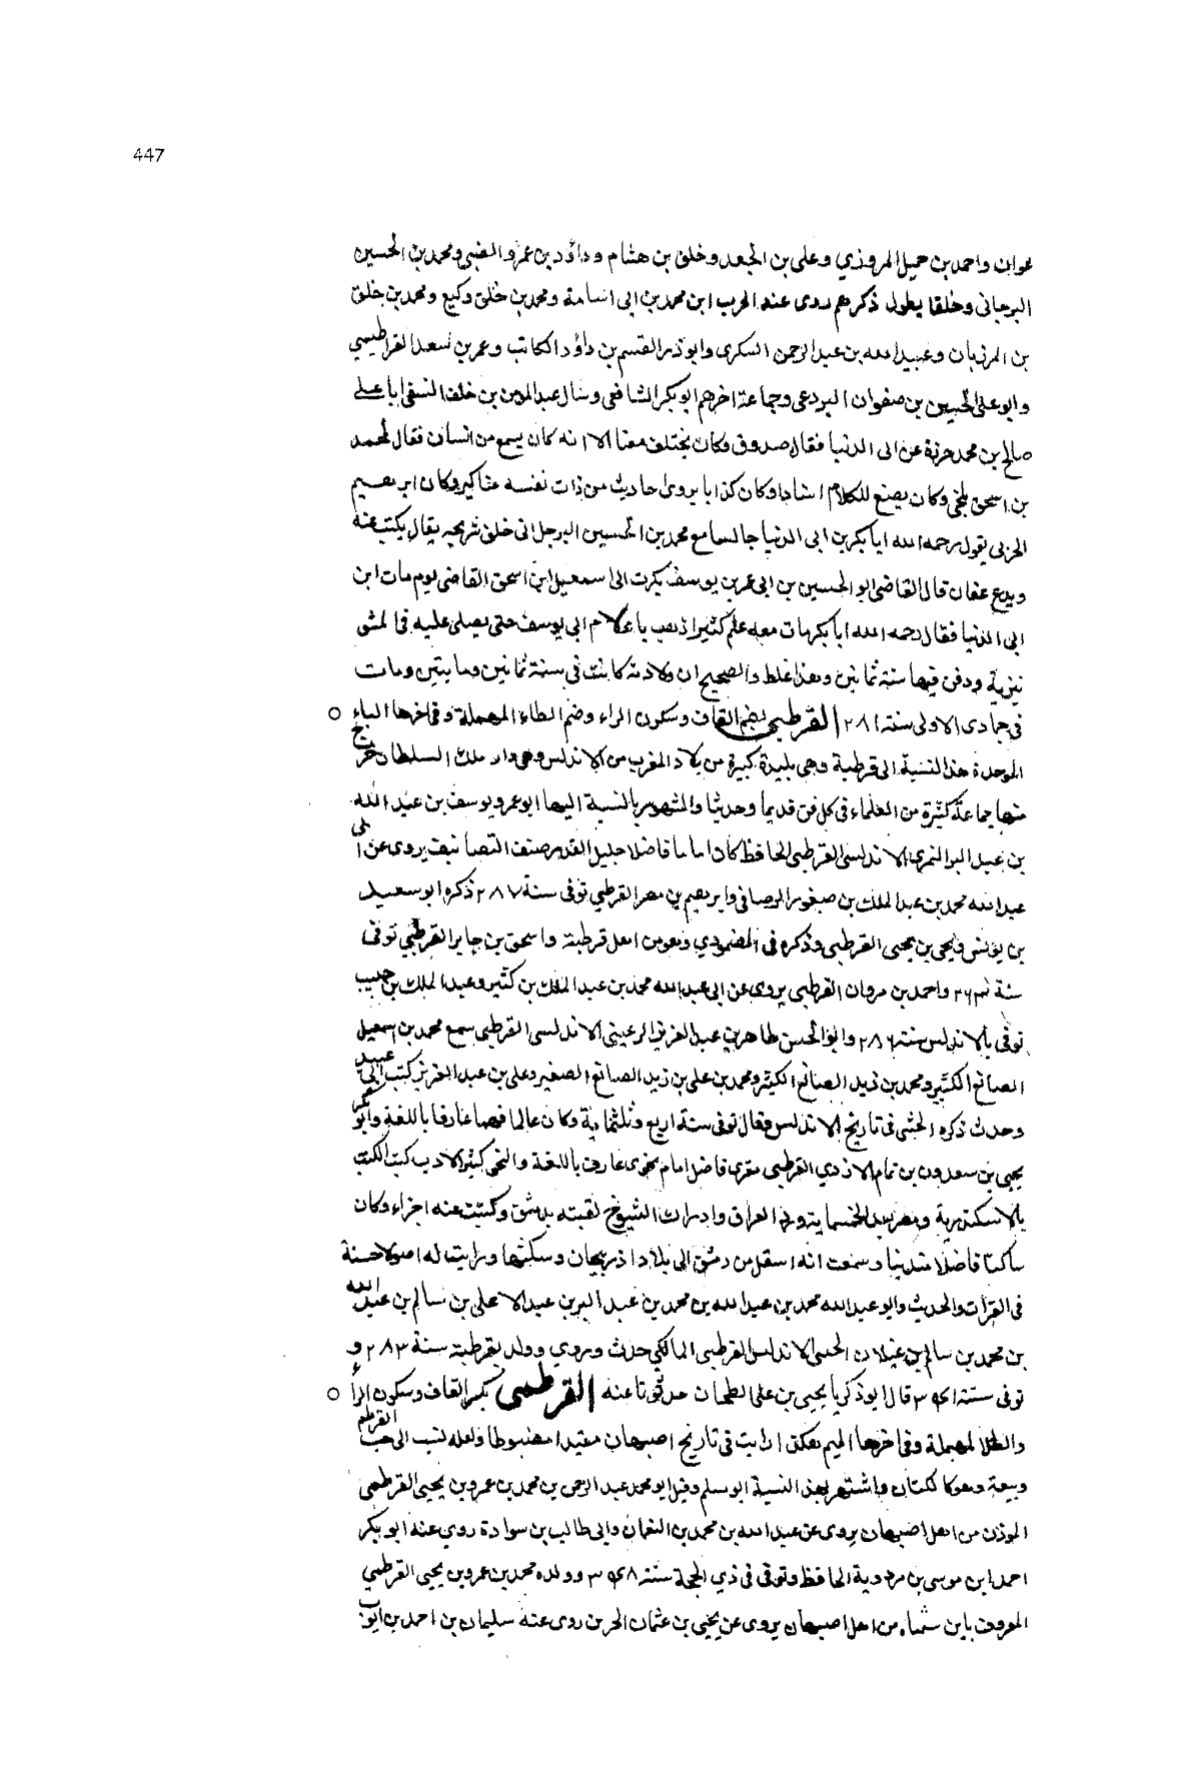 447
عوان واحمد بن جميل المروزي وعلى بن الجعد وخلف بن هشام وداؤد بن عمرو الضبى ومحمد بن الحسين
البرجلانى وخلقا يطول ذكرهم روى عنه الحرث ابن محمد بن ابى اسامة ومحمد بن خلف وكيع ومحمد بن خلف
بن المرزبان وعبيد الله بن عبد الرحمن السكرى وابو ذر القسم بن داؤد الكاتب وعمر بن سعد القراطيسي
وابو على الحسين بن صفوان البردعى وجماعة اخرهم ابو بكر الشافعى وسال عبد المومن بن خلف النسفى ابا على
صالح بن محمد جزرة عن ابى الدنيا فقال صدوق وكان يختلف معنا الا انه كان يسمع من انسان فقال له محمد
بن اسحق بلخى وكان يضع للكلام اسنادا وكان كذابا يروى احاديث من ذات نفسه مناكير وكان ابرهيم
الحربى يقول رحمه الله ابا بكر بن ابى الدنيا جالسا مع محمد بن الحسين البرجلانى خلف يقال يكتب عنه
ويدع عفان قال القاضى ابو الحسين بن ابى عمر بن يوسف بكرت الى اسمعيل ابن اسحق القاضى يوم مات ابن
ابى الدنيا فقال رحمه الله ابا بكر مات معه علم كثير اذهب يا غلام الى يوسف حتى يصلى عليه فى الشو
نيزية ودفن فيها سنة ثمانين وهذا غلط والصحيح ان ولادته كانت فى سنة ثمانين ومايتين ومات
فى جمادى الاولى سنة ٢٨١ القرطبى بضم القاف وسكون الراء وضم الطاء المهملة وفى اخرها الباء
الموحدة هذا النسبة الى قرطبة وهى بليدة كبيرة من بلاد المغرب من الاندلس وهى دار ملك السلطان خرج
منها جماعة كثيرة من العلماء فى كل فن قديما وحديثا والمشهور بالنسبة اليها ابو عمرو يوسف بن عبد الله
بن عبد البر النمرى الاندلسى القرطبى الحافظ كان اماما فاضلا جليل القدر صنف التصانيف يروى عن ابى
عبد الله محمد بن عبد الملك بن صيفون الرصافى وابرهيم بن مصر القرطبي توفى سنة ٢٨٧ ذكره ابو سعيد
بن يونس ويحيى بن يحيى القرطبى وذكره فى المصمودي وهو من اهل قرطبة واسحق بن جابر القرطبي توفى
سنة ٢٦٣ واحمد بن مروان القرطبى يروى عن ابى عبد الله محمد بن عبد الملك بن كثير وعبد الملك بن حبيب
توفى بالاندلس سنة ٢٨٦ وابو الحسن طاهر بن عبد العزيز الرعينى الاندلسى القرطبى سمع محمد بن اسمعيل
الصايغ الكثير ومحمد بن زيد الصائغ الكثير ومحمد بن على بن زيد الصائغ الصغير وعلى بن عبد العزيز كتب ابى عبيد
وحدث ذكره الخشنى فى تاريخ الاندلس فقال توفى سنة اربع وثلثماية وكان عالما فهما عارفا باللغة وابو بكر
يحيى بن سعدون بن تمام الازدي القرطبى مقرى فاضل امام نحوى عارف باللغة والنحو كثير الادب كتب الكتب
بالاسكندرية وبمصر بعد الخمسماية ودخل العراق وادرك الشيوخ لقيته بدمشق وكتبت عنه اجزاء وكان
ساكنا فاضلا متدينا وسمعت انه انتقل من دمشق الى بلاد اذربيجان وسكنها ورايت له اصولا حسنة
فى القرآت والحديث وابو عبد الله محمد بن عبد الله بن محمد بن عبد البر بن عبد الاعلى بن سالم بن عبد الله
بن محمد بن سالم بن غيلان الاندلسى القرطبى المالكي حدث وروي وولد بقرطبة سنة ٢٨٣ و
توفى سنة قال ابو ذكريا يحيى بن على الطحان حدثونا عنه القرطمى بكسر القاف وسكون الرأ
والطاء المهملة وفى اخرها الميم هكذا رايت فى تاريخ اصبهان مقيدا مضبوطا ولعله نسب الى حب القرطم
وبيعه وهو كالكتان واشتهر بهذ النسبة ابو مسلم وقيل ابو محمد عبد الرحمن بن محمد بن عمرو بن يحيى القرطمى
الموذن من اهل اصبهان يروى عن عبد الله بن محمد بن النعمان وابى طالب بن سوادة روي عنه ابو بكر
احمد ابن موسى بن مردوية الحافظ وتوفى فى ذي الحجة سنة وولده محمد بن عمرو بن يحيى القرطمي
المعروف بابن من اهل اصبهان يروى عن يحيى بن عثمان روى عنه سليمان بن احمد بن ايوب